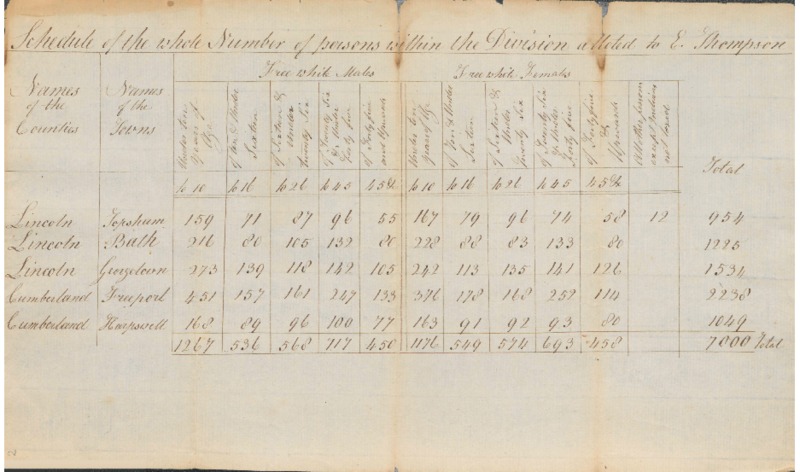 Schedule of the whole Number of persons within the Division alloted to E. Thompson
Names of the Counties
Names of the Towns
Free white Males
Free white Females
Under ten Years of Age
of ten & Under Sixteen
of Sixteen & Under Twenty Six
of Twenty Six & Under Forty five
of Forty five and Upwards
Under ten years of Age
of Ten & Under Sixteen
of Sixteen & Under Twenty Six
of Twenty Six & Under Forty five
of Forty five & Upwards
All other persons except Indians not taxed
Total
to 10 to 16 to 26 to 45 45 &c to 10 to 16 to 26 to 45 45 &c
Lincoln Topsham 159 71 87 96 55 167 79 96 74 58 12 954
Lincoln Bath 216 80 105 132 80 228 88 83 133 80 1225
Lincoln Georgetown 273 139 118 142 105 242 113 135 141 126 1534
Cumberland Freeport 451 157 161 247 133 376 178 168 252 114 2238
Cumberland Harpswell 168 89 96 100 77 163 91 92 93 80 1049
1267 536 568 717 450 1176 549 574 693 458 7000 Total